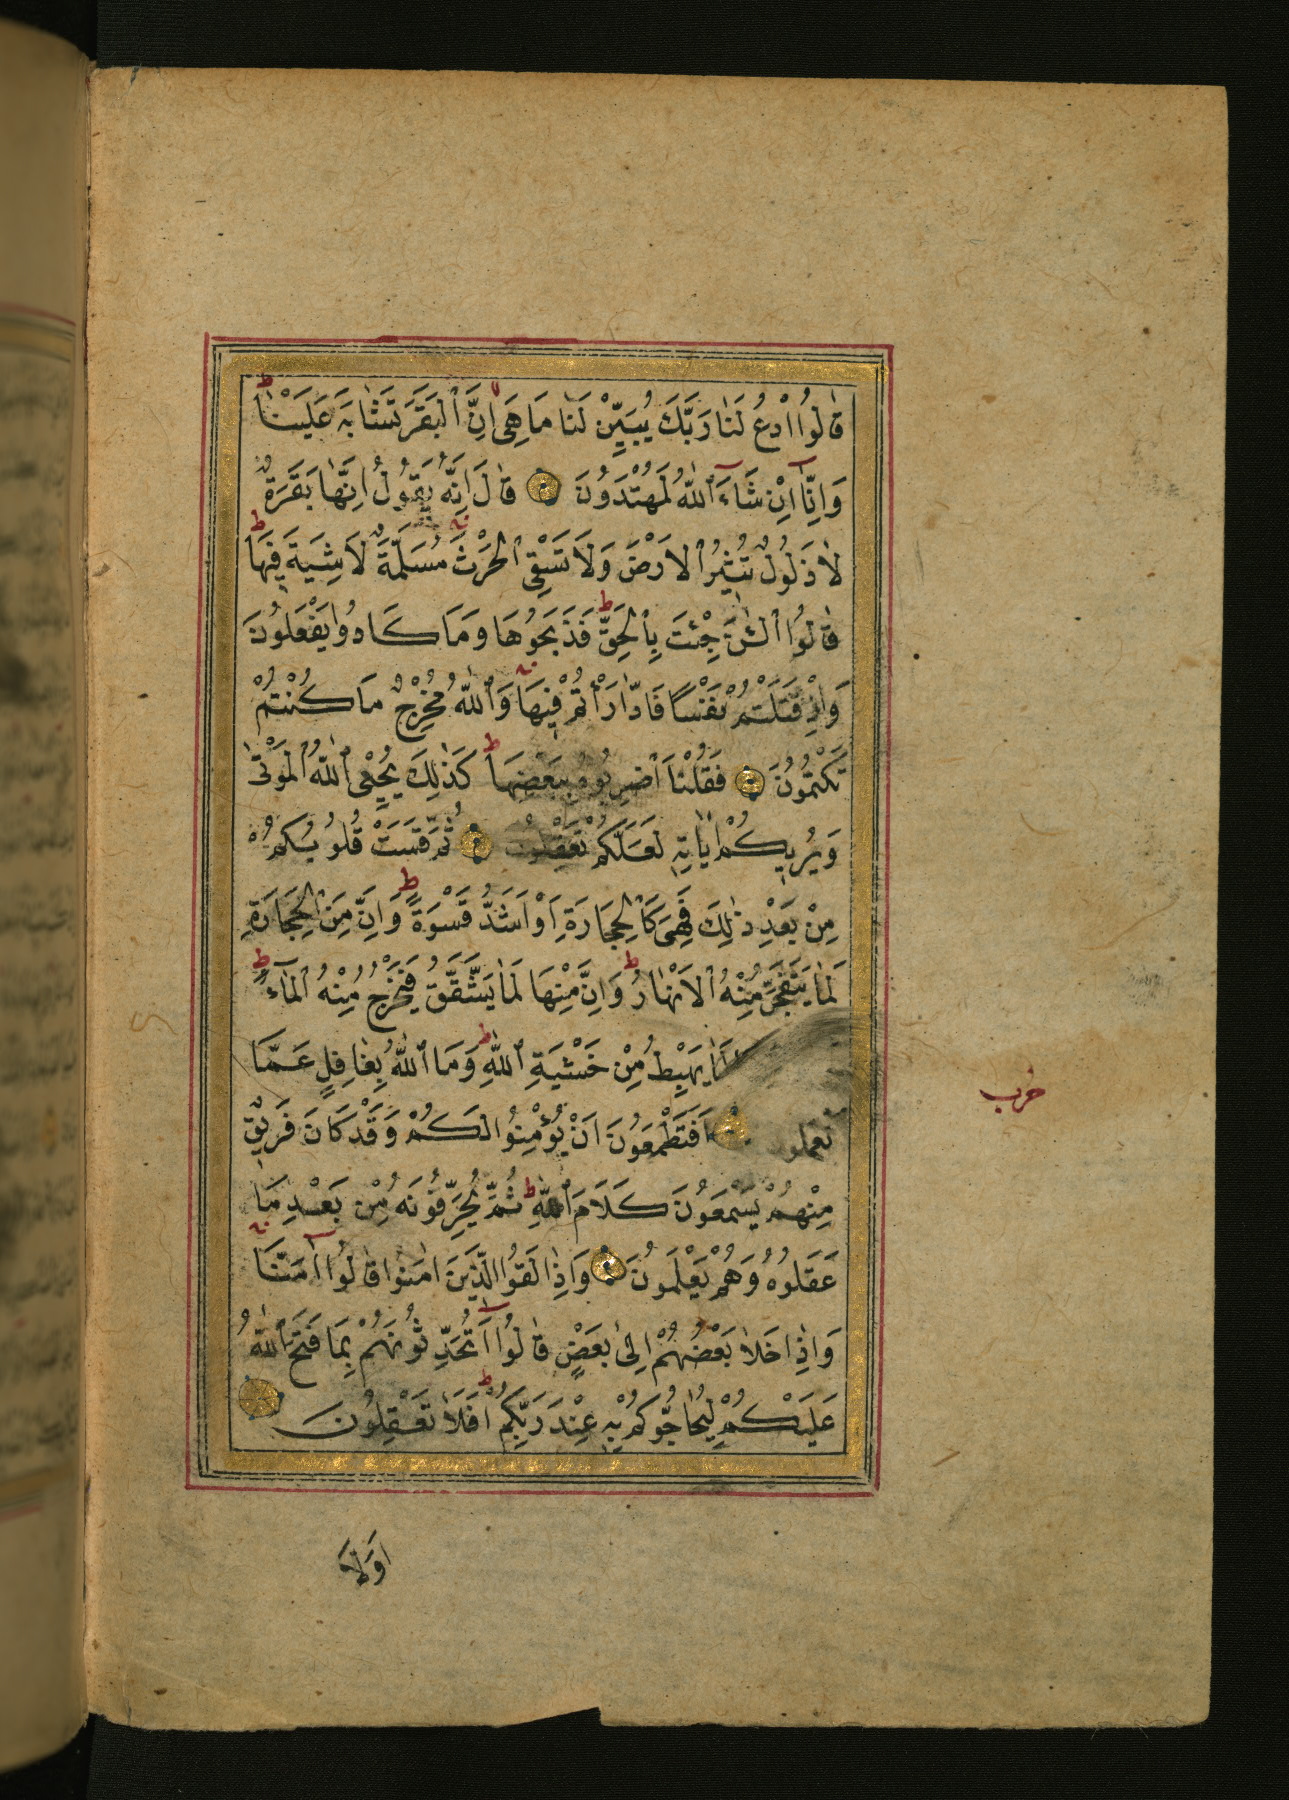 قَالُوا ادْعُ لَنَا رَبَّكَ يُبَيِّنْ لَنَا مَا هِيَ اِنَّ الْبَقَرَ تَشَابَهَ عَلَيْنَا ط
وَاِنَّا اِنْ شَاءَ اللّٰهُ لَمُهْتَدُونَ قَالَ اِنَّهُ يَقُولُ اِنَّهَا بَقَرَةٌ
لَا ذَلُولٌ تُثِيرُ الْاَرْضَ وَلَا تَسْقِي الْحَرْثَ مُسَلَّمَةٌ لَا شِيَةَ فِيهَا ط
قَالُوا الْـٰٔنَ جِئْتَ بِالْحَقِّ ط فَذَبَحُوهَا وَمَا كَادُوا يَفْعَلُونَ
وَاِذْ قَتَلْتُمْ نَفْسًا فَادّٰارَأْتُمْ فِيهَا وَاللّٰهُ مُخْرِجٌ مَا كُنْتُمْ
تَكْتُمُونَ فَقُلْنَا اضْرِبُوهُ بِبَعْضِهَا ط كَذٰلِكَ يُحْيِي اللّٰهُ الْمَوْتٰى
وَيُرِيكُمْ اٰيَاتِهِ لَعَلَّكُمْ تَعْقِلُونَ ثُمَّ قَسَتْ قُلُوبُكُمْ
مِنْ بَعْدِ ذٰلِكَ فَهِيَ كَالْحِجَارَةِ اَوْ اَشَدُّ قَسْوَةً ط وَاِنَّ مِنَ الْحِجَارَةِ
لَمَا يَتَفَجَّرُ مِنْهُ الْاَنْهَارُ ط وَاِنَّ مِنْهَا لَمَا يَشَّقَّقُ فَيَخْرُجُ مِنْهُ الْمَاءُ ط
لَمَا يَهْبِطُ مِنْ خَشْيَةِ اللّٰهِ ط وَمَا اللّٰهُ بِغَافِلٍ عَمَّا
تعملون اَفَتَطْمَعُونَ اَنْ يُؤْمِنُوا لَكُمْ وَقَدْ كَانَ فَرِيقٌ
مِنْهُمْ يَسْمَعُونَ كَلَامَ اللّٰهِ ط ثُمَّ يُحَرِّفُونَهُ مِنْ بَعْدِ مَا
عَقَلُوهُ وَهُمْ يَعْلَمُونَ وَاِذَا لَقُوا الَّذِينَ اٰمَنُوا قَالُوا اٰمَنَّا
وَاِذَا خَلَا بَعْضُهُمْ اِلٰى بَعْضٍ قَالُوا اَتُحَدِّثُونَهُمْ بِمَا فَتَحَ اللّٰهُ
عَلَيْكُمْ لِيُحَاجُّوكُمْ بِهِ عِنْدَ رَبِّكُمْ ط اَفَلَا تَعْقِلُونَ
حزب
اَوَلَا